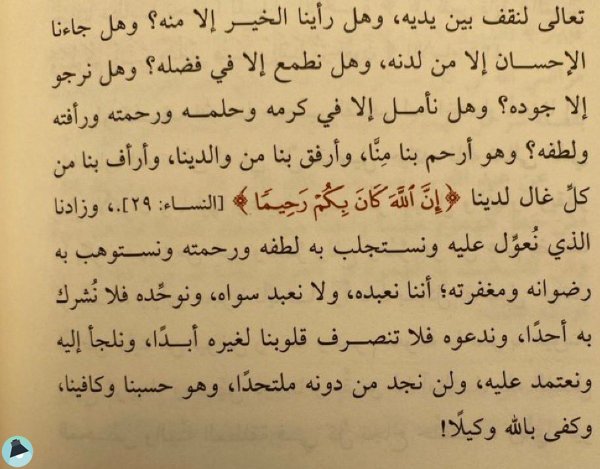 تعالى لنقف بين يديه، وهل رأينا الخير إلا منه؟ وهل جاءنا
الإحسان إلا من لدنه، وهل نطمع إلا في فضله؟ وهل نرجو
إلا جوده؟ وهل نأمل إلا في كرمه وحلمه ورحمته ورأفته
ولطفه؟ وهو أرحم بنا مِنَّا، وأرفق بنا من والدينا، وأرأف بنا من
كلِّ غال لدينا ﴿إِنَّ ٱللَّهَ كَانَ بِكُمْ رَحِيمًا﴾ [النساء: ٢٩].، وزادنا
الذي نُعوِّل عليه ونستجلب به لطفه ورحمته ونستوهب به
رضوانه ومغفرته؛ أننا نعبده، ولا نعبد سواه، ونوحِّده فلا نُشرك
به أحدًا، وندعوه فلا تنصرف قلوبنا لغيره أبدًا، ونلجأ إليه
ونعتمد عليه، ولن نجد من دونه ملتحدًا، وهو حسبنا وكافينا،
وكفى بالله وكيلًا!